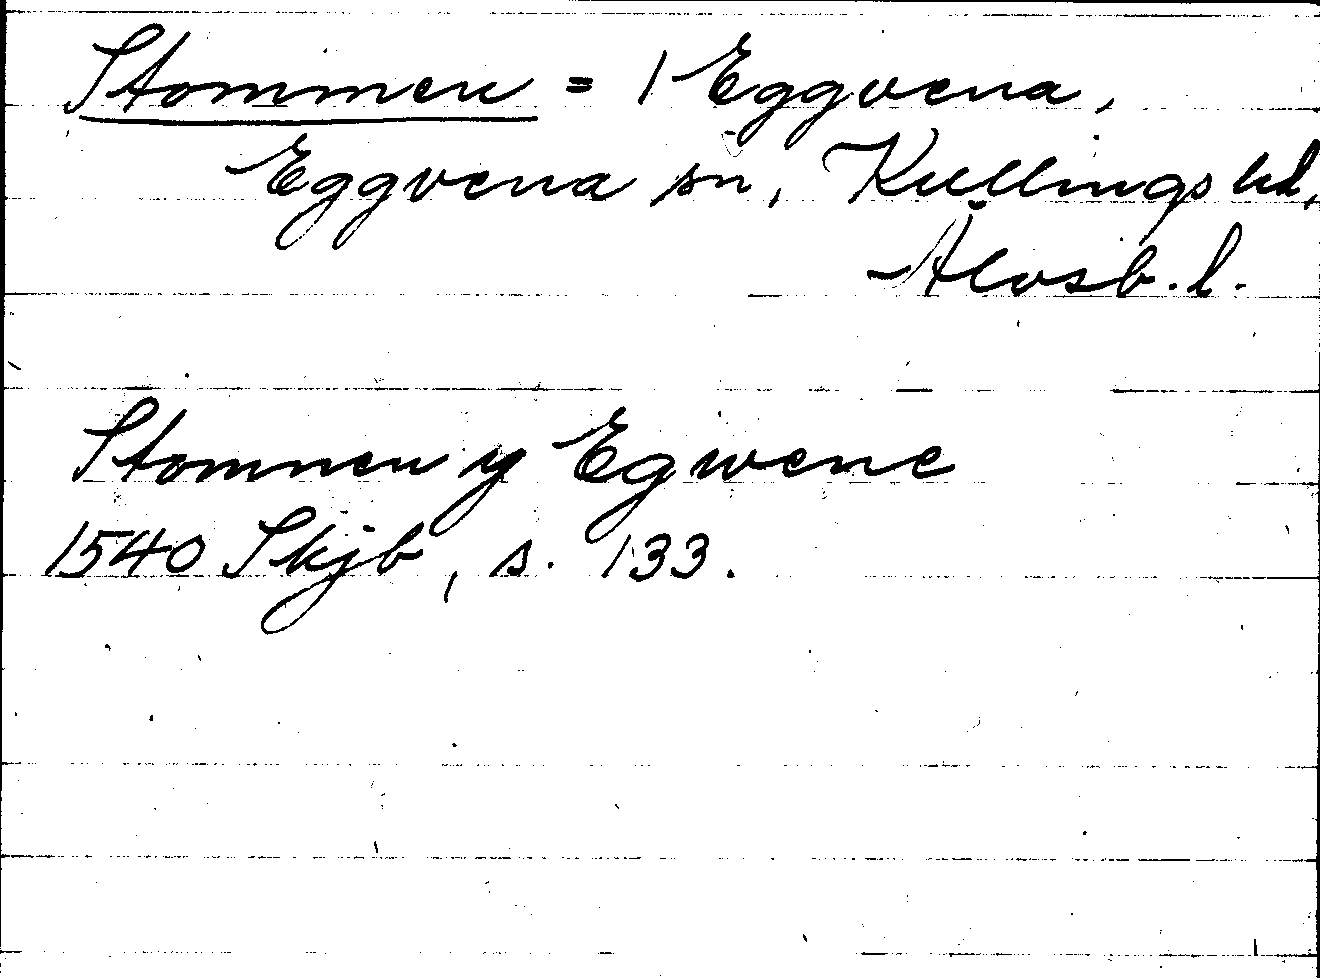 Stommen = 1 Eggvena,
Eggvena sn, Kullings hd,
Älvsb. l.
Stomnen y Egwene
1540 Skjb, s. 133.